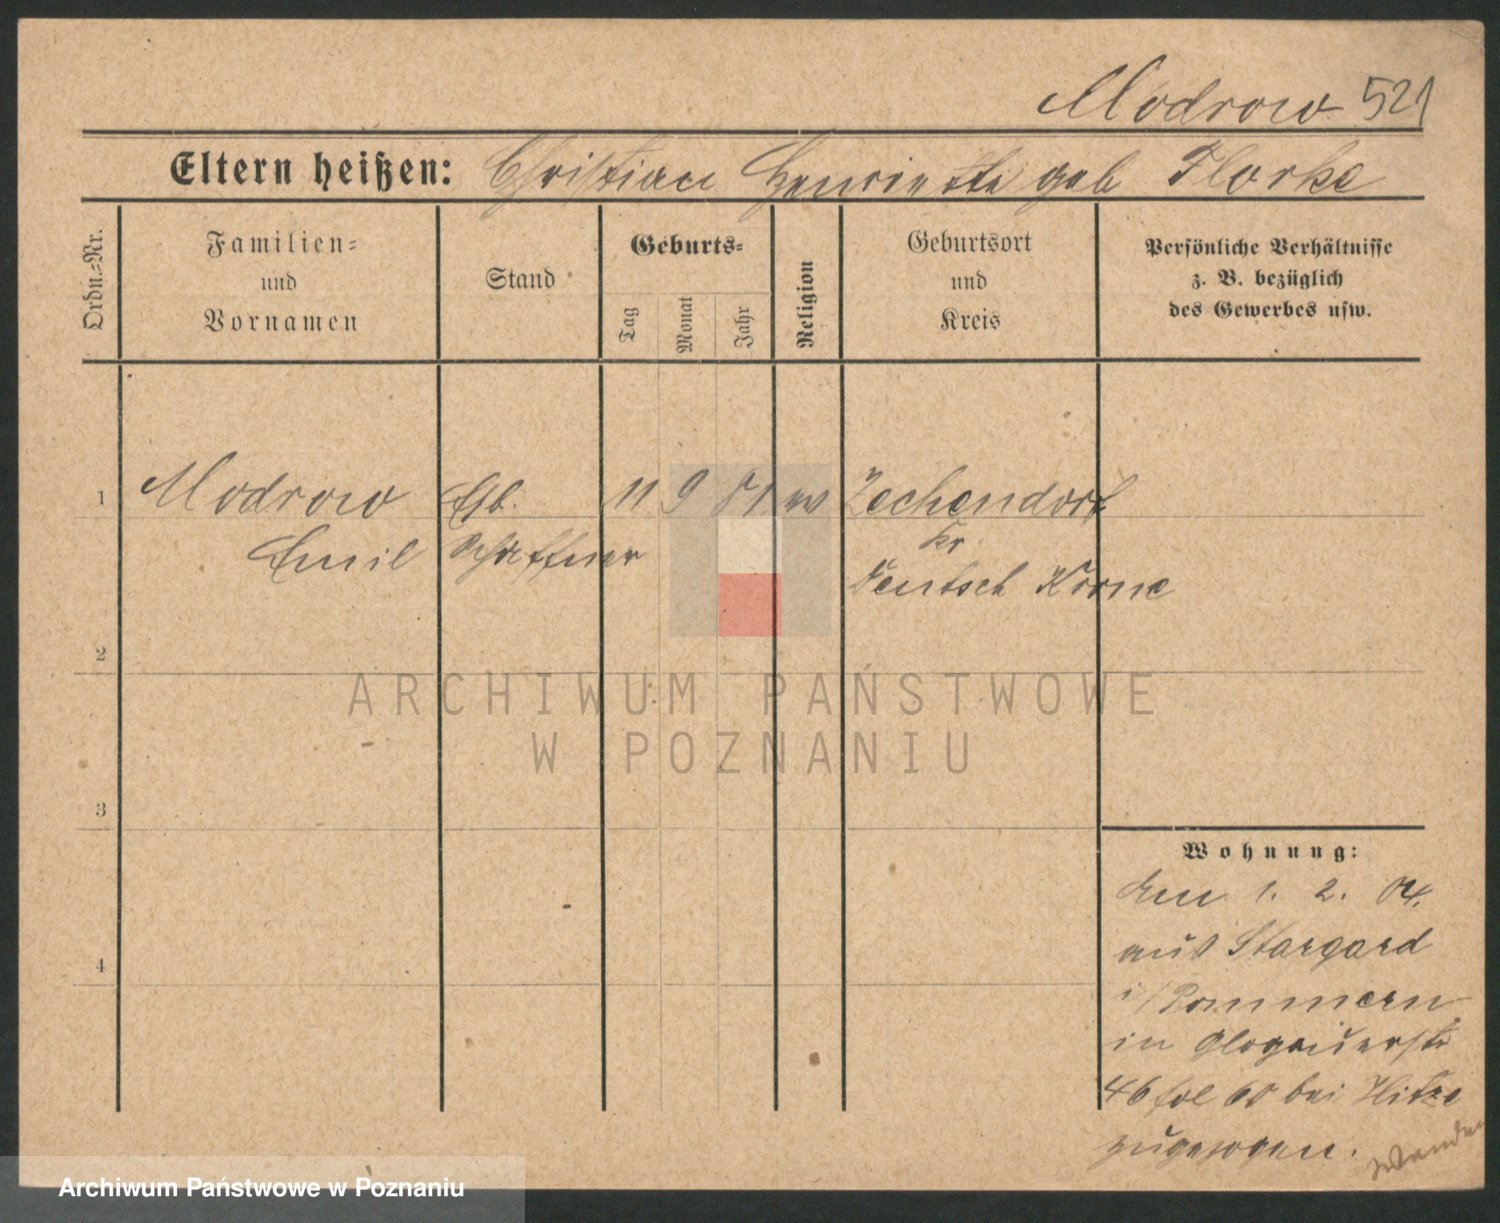 Modrow 521
Eltern heißen: Christian Henriette geb Florke
Ordn.=Nr.
Familien=
und
Vornamen
Stand
Geburts=
Tag
Monat
Jahr
Religion
Geburtsort
und
Kreis
Persönliche Verhältnisse
z. B. bezüglich
des Gewerbes usw.
1 Modrow Esb. 11 9 81 ev Zechendorf
Emil Schaffner Kr
Deutsch Krone
2
ARCHIWUM PAŃSTWOWE
W POZNANIU
3
Wohnung:
den 1. 2. 04.
aus Stargard
i/Pommern
4
in Glogauerstr
46 fol 60 bei Hitze
zugezogen.
Archiwum Państwowe w Poznaniu